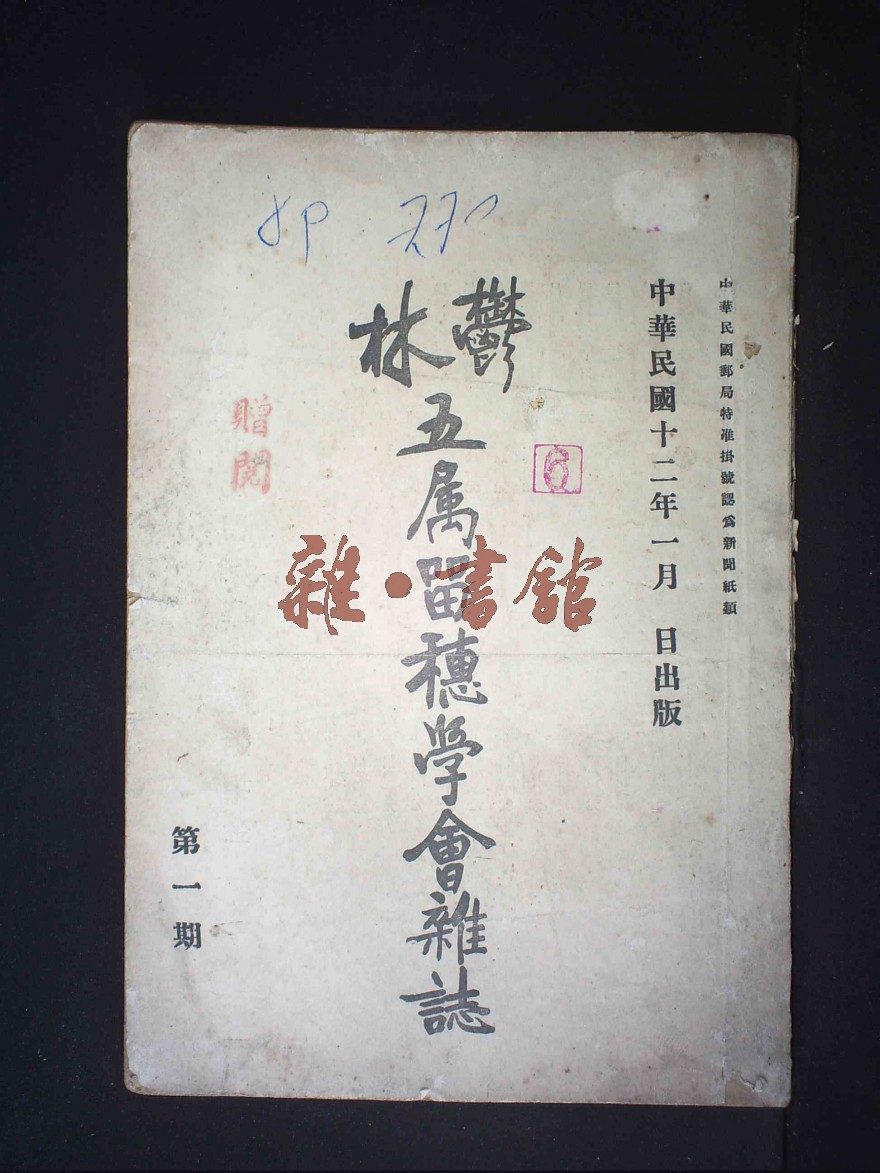 中華民國郵局特准掛號認爲新聞紙類
中華民國十二年一月　日出版
鬱林五属留穗学會雜誌
第一期
贈閱
6
雜·書館